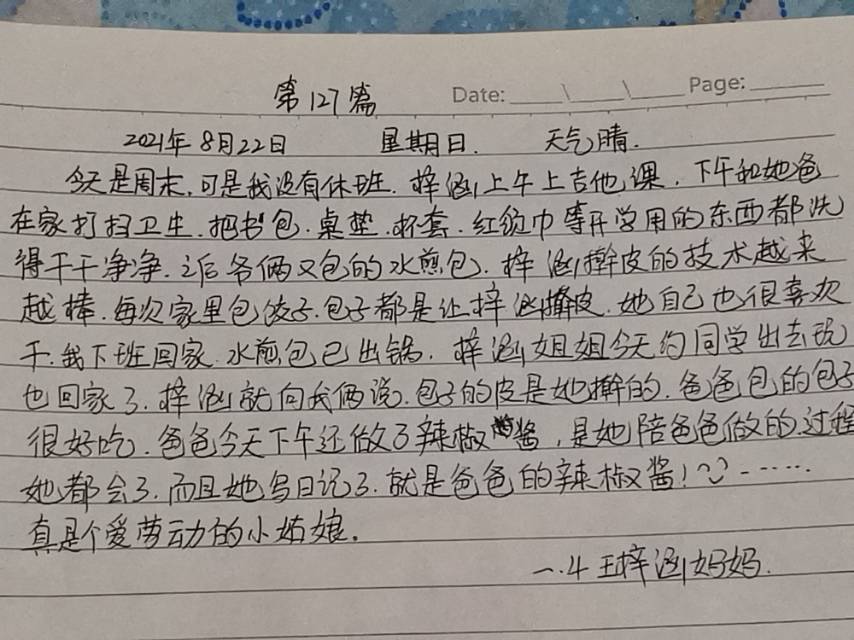 第127篇
Date: ____\____\____ Page: ______
2021年8月22日 星期日. 天气晴.
今天是周末,可是我没有休班.梓涵上午上吉他课.下午和她爸
在家打扫卫生.把书包.桌垫.杯套.红领巾等开学用的东西都洗
得干干净净.之后爷俩又包的水煎包.梓涵擀皮的技术越来
越棒.每次家里包饺子.包子都是让梓涵擀皮.她自己也很喜欢
干.我下班回家.水煎包已出锅.梓涵姐姐今天约同学出去玩
也回家了.梓涵就向我俩说.包子的皮是她擀的.爸爸包的包子
很好吃.爸爸今天下午还做了辣椒酱,是她陪爸爸做的.过程
她都会了.而且她写日记了.就是爸爸的辣椒酱!······
真是个爱劳动的小姑娘.
一.4 王梓涵妈妈.